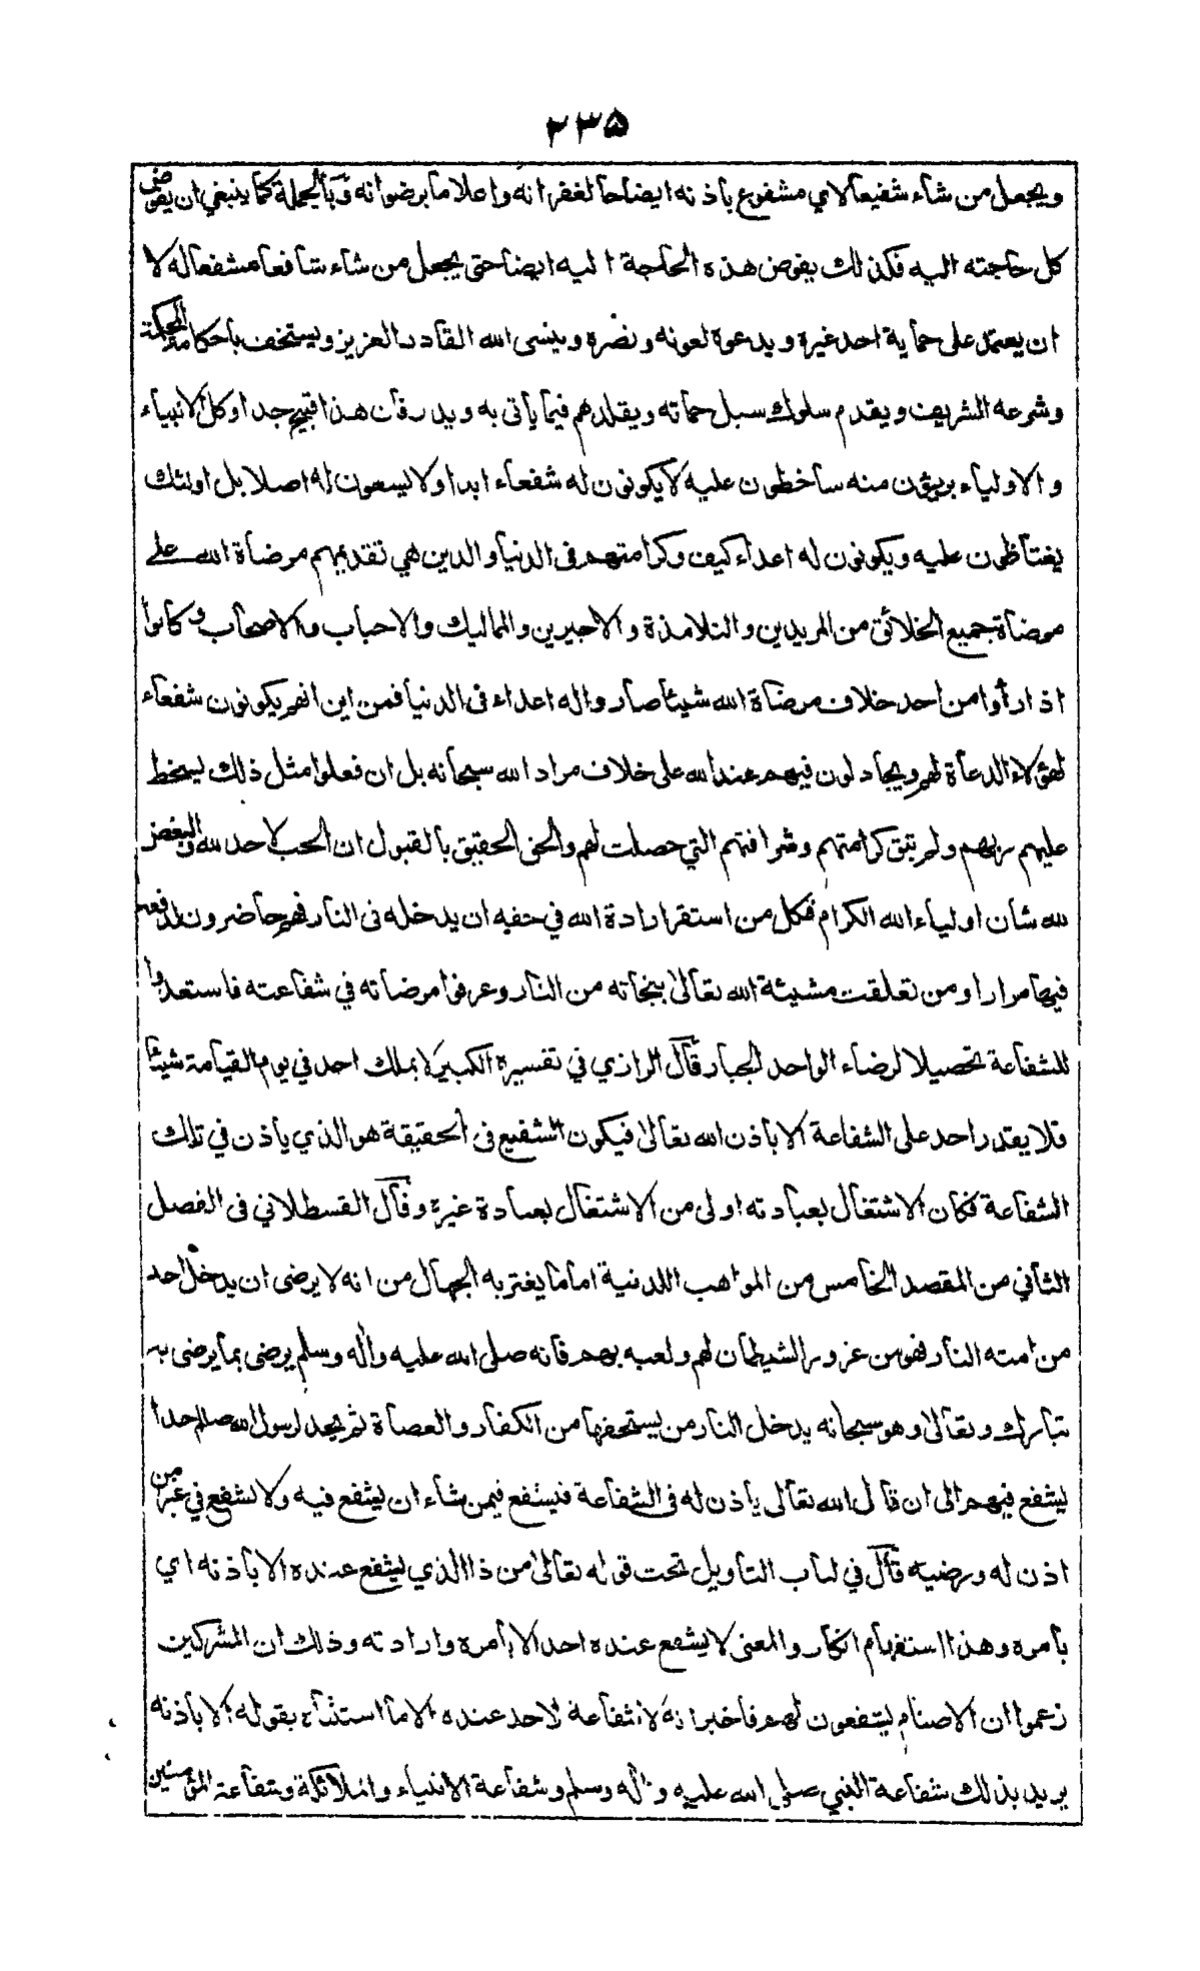 ٢٣٥
ويجعل من شاء شفيعا لاي مشفوع باذنه ايضاحا لغفرانه واعلاما برضوانه وبالجملة كما ينبغي ان يفوض
كل حاجته اليه فكذلك يفوض هذه الحاجة اليه ايضا حتى يجعل من شاء شافعا مشفعا له لا
ان يعتمد على حماية احد غيره ويدعوه لعونه ونصره وينسى الله القادر العزيز ويستخف باحكامه المحكمة
وشرعه الشريف ويقدم سلوك سبل حماته ويقلدهم فيما ياتى به ويدر فان هذا قبيح جدا وكل الانبياء
والاولياء بريؤن منه ساخطون عليه لا يكونون له شفعاء ابدا ولا يسعون له اصلا بل اولئك
يغتاظون عليه ويكونون له اعداء كيف وكرامتهم فى الدنيا والدين هي تقديمهم مرضاة الله على
مرضاة جميع الخلائق من المريدين والتلامذة والاجيرين والمماليك والاحباب والاصحاب وكانوا
اذا رأوا من احد خلاف مرضاة الله شيئا صاروا له اعداء فى الدنيا فمن اين انهم يكونون شفعاء
لهؤلاء الدعاة لهم ويجادلون فيهم عند الله على خلاف مراد الله سبحانه بل ان فعلوا مثل ذلك ليسخط
عليهم ربهم ولم تبق كرامتهم وشرافتهم التي حصلت لهم والحق الحقيق بالقبول ان الحب لاحد لله والبغض
لله شان اولياء الله الكرام فكل من استقر ارادة الله في حقه ان يدخله فى النار فهم حاضرون لدفعه
فيها مرارا ومن تعلقت مشيئة الله تعالى بنجاته من النار وعرفوا مرضاته في شفاعته فاستعدوا
للشفاعة تحصيلا لرضاء الواحد الجبار قال الرازي في تفسيره الكبير لا يملك احد في يوم القيامة شيئا
فلا يقدر احد على الشفاعة الا باذن الله تعالى فيكون الشفيع فى الحقيقة هو الذي ياذن في تلك
الشفاعة فكان الاشتغال بعبادته اولى من الاشتغال بعبادة غيره وقال القسطلاني فى الفصل
الثاني من المقصد الخامس من المواهب اللدنية اما ما يغتر به الجهال من انه لا يرضى ان يدخل احد
من امته النار فهو من غرور الشيطان لهم ولعبه بهم فانه صلى الله عليه واله وسلم يرضى بما يرضى به
تبارك وتعالى وهو سبحانه يدخل النار من يستحقها من الكفار والعصاة ثم يحد لرسول الله صلعم حدا
ليشفع فيهم الى ان قال الله تعالى ياذن له فى الشفاعة فيشفع فيمن شاء ان يشفع فيه ولا يشفع في غير من
اذن له ورضيه قال في لباب التاويل تحت قوله تعالى من ذا الذي يشفع عنده الا باذنه اي
بامره وهذا استفهام انكار والمعنى لا يشفع عنده احد الا بامره وارادته وذلك ان المشركين
زعموا ان الاصنام يشفعون لهم فاخبر انه لا شفاعة لاحد عنده الا ما استثناه بقوله الا باذنه
يريد بذلك شفاعة النبي صلى الله عليه واله وسلم وشفاعة الانبياء والملائكة وشفاعة المؤمنين